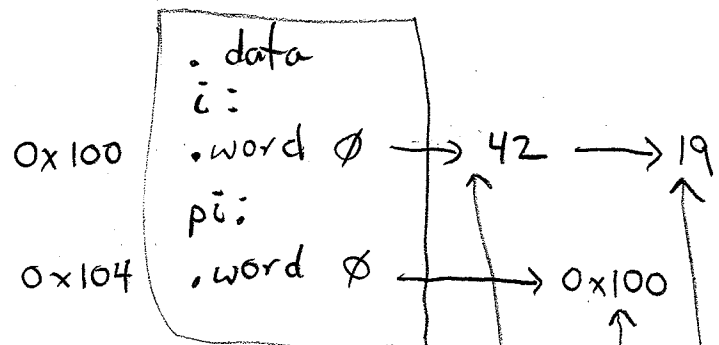 .data
i:
0x100 .word Ø → 42 → 19
pi:
0x104 .word Ø → 0x100